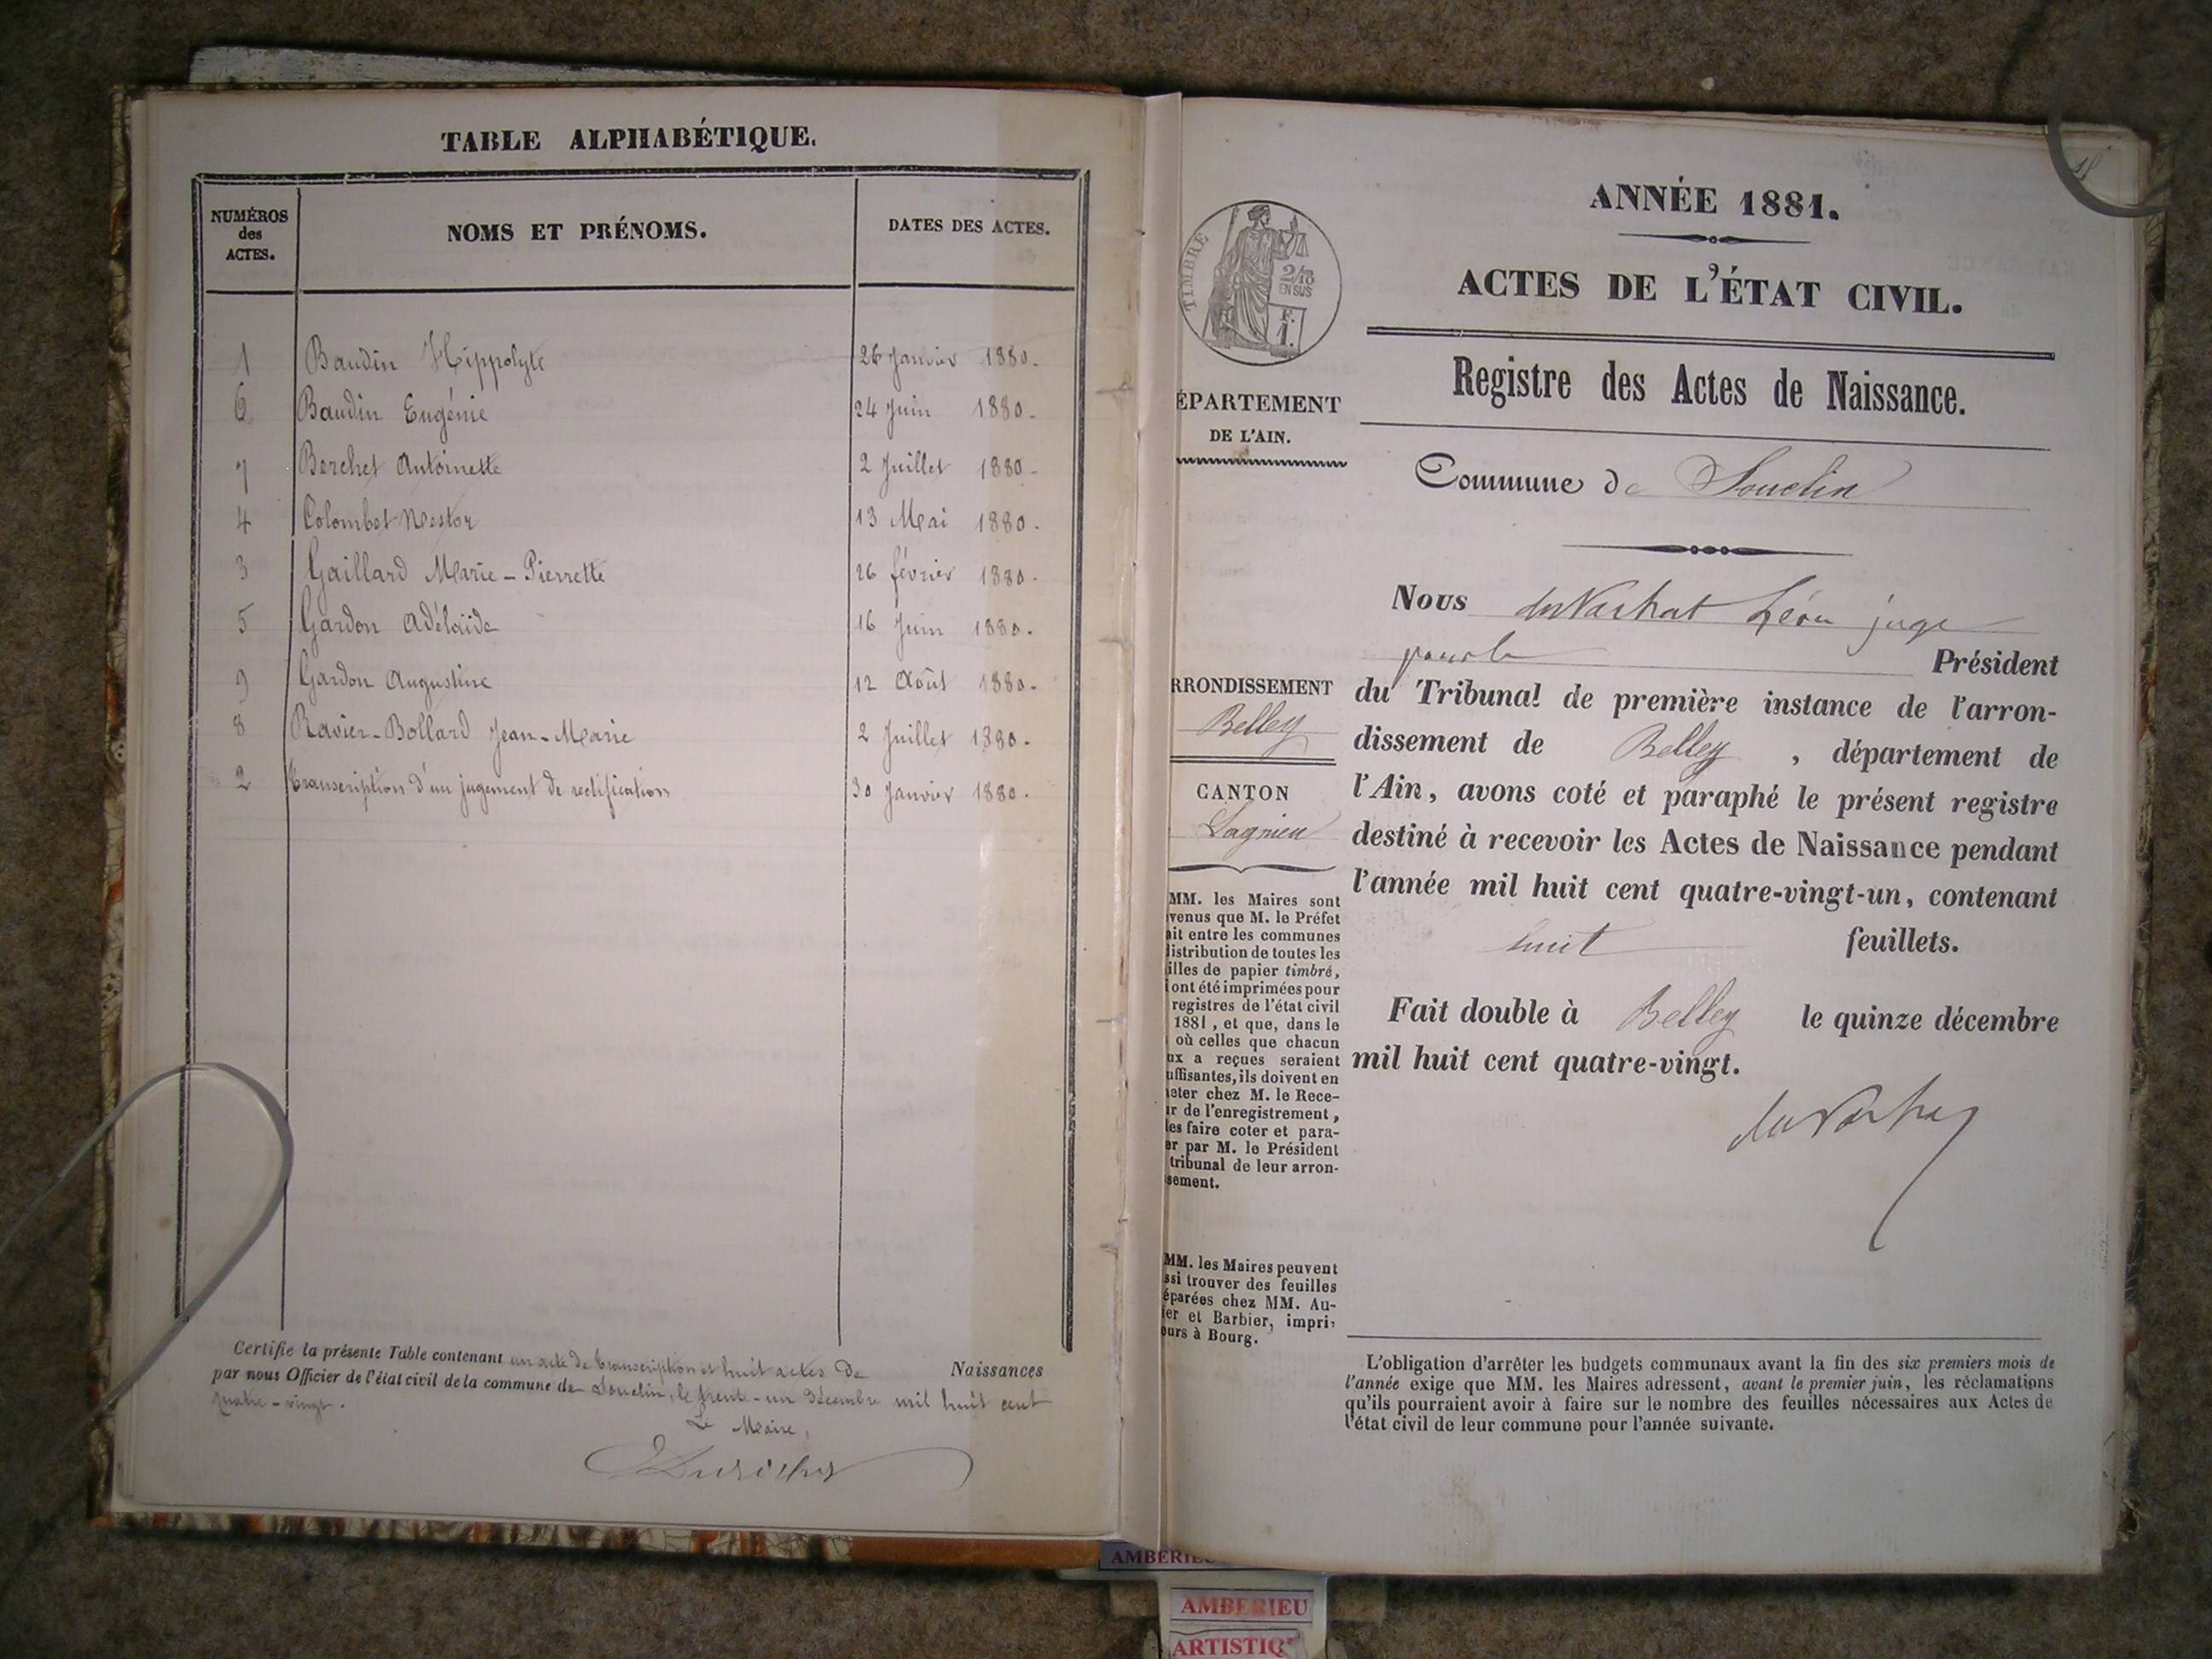 TABLE ALPHABÉTIQUE.
NUMÉROS
des
ACTES.
NOMS ET PRÉNOMS.
DATES DES ACTES.
1 Baudin Hippolyte 26 Janvier 1880.
6 Baudin Eugénie 24 Juin 1880.
7 Berchet Antoinette 2 Juillet 1880.
4 Colombet Nestor 13 Mai 1880.
3 Gaillard Marie-Pierrette 26 février 1880.
5 Gardon Adélaïde 16 Juin 1880.
9 Gardon Augustine 12 Août 1880.
8 Ravier-Bollard Jean-Marie 2 Juillet 1880.
2 Transcription d'un jugement de rectification 30 Janvier 1880.
Certifie la présente Table contenant un acte de transcription et huit actes de Naissances
par nous Officier de l'état civil de la commune de Souclin, le trente-un Décembre mil huit cent
quatre-vingt.
Le Maire,
ANNÉE 1881.
ACTES DE L'ÉTAT CIVIL.
Registre des Actes de Naissance.
TIMBRE
2/10
EN SUS
F.
1.
ÉPARTEMENT
DE L'AIN.
Commune de Souclin
RRONDISSEMENT
Belley
CANTON
Lagnieu
MM. les Maires sont
venus que M. le Préfet
ait entre les communes
distribution de toutes les
illes de papier timbré,
i ont été imprimées pour
registres de l'état civil
1881, et que, dans le
où celles que chacun
ux a reçues seraient
uffisantes, ils doivent en
eter chez M. le Rece-
ur de l'enregistrement,
les faire coter et para-
er par M. le Président
tribunal de leur arron-
sement.
MM. les Maires peuvent
ssi trouver des feuilles
éparées chez MM. Au-
ier et Barbier, impri-
eurs à Bourg.
Nous Léon juge
pour le Président
du Tribunal de première instance de l'arron-
dissement de Belley, département de
l'Ain, avons coté et paraphé le présent registre
destiné à recevoir les Actes de Naissance pendant
l'année mil huit cent quatre-vingt-un, contenant
huit feuillets.
Fait double à Belley le quinze décembre
mil huit cent quatre-vingt.
L'obligation d'arrêter les budgets communaux avant la fin des six premiers mois de
l'année exige que MM. les Maires adressent, avant le premier juin, les réclamations
qu'ils pourraient avoir à faire sur le nombre des feuilles nécessaires aux Actes de
l'état civil de leur commune pour l'année suivante.
AMBERIEU
AMBERIEU
ARTISTIQ